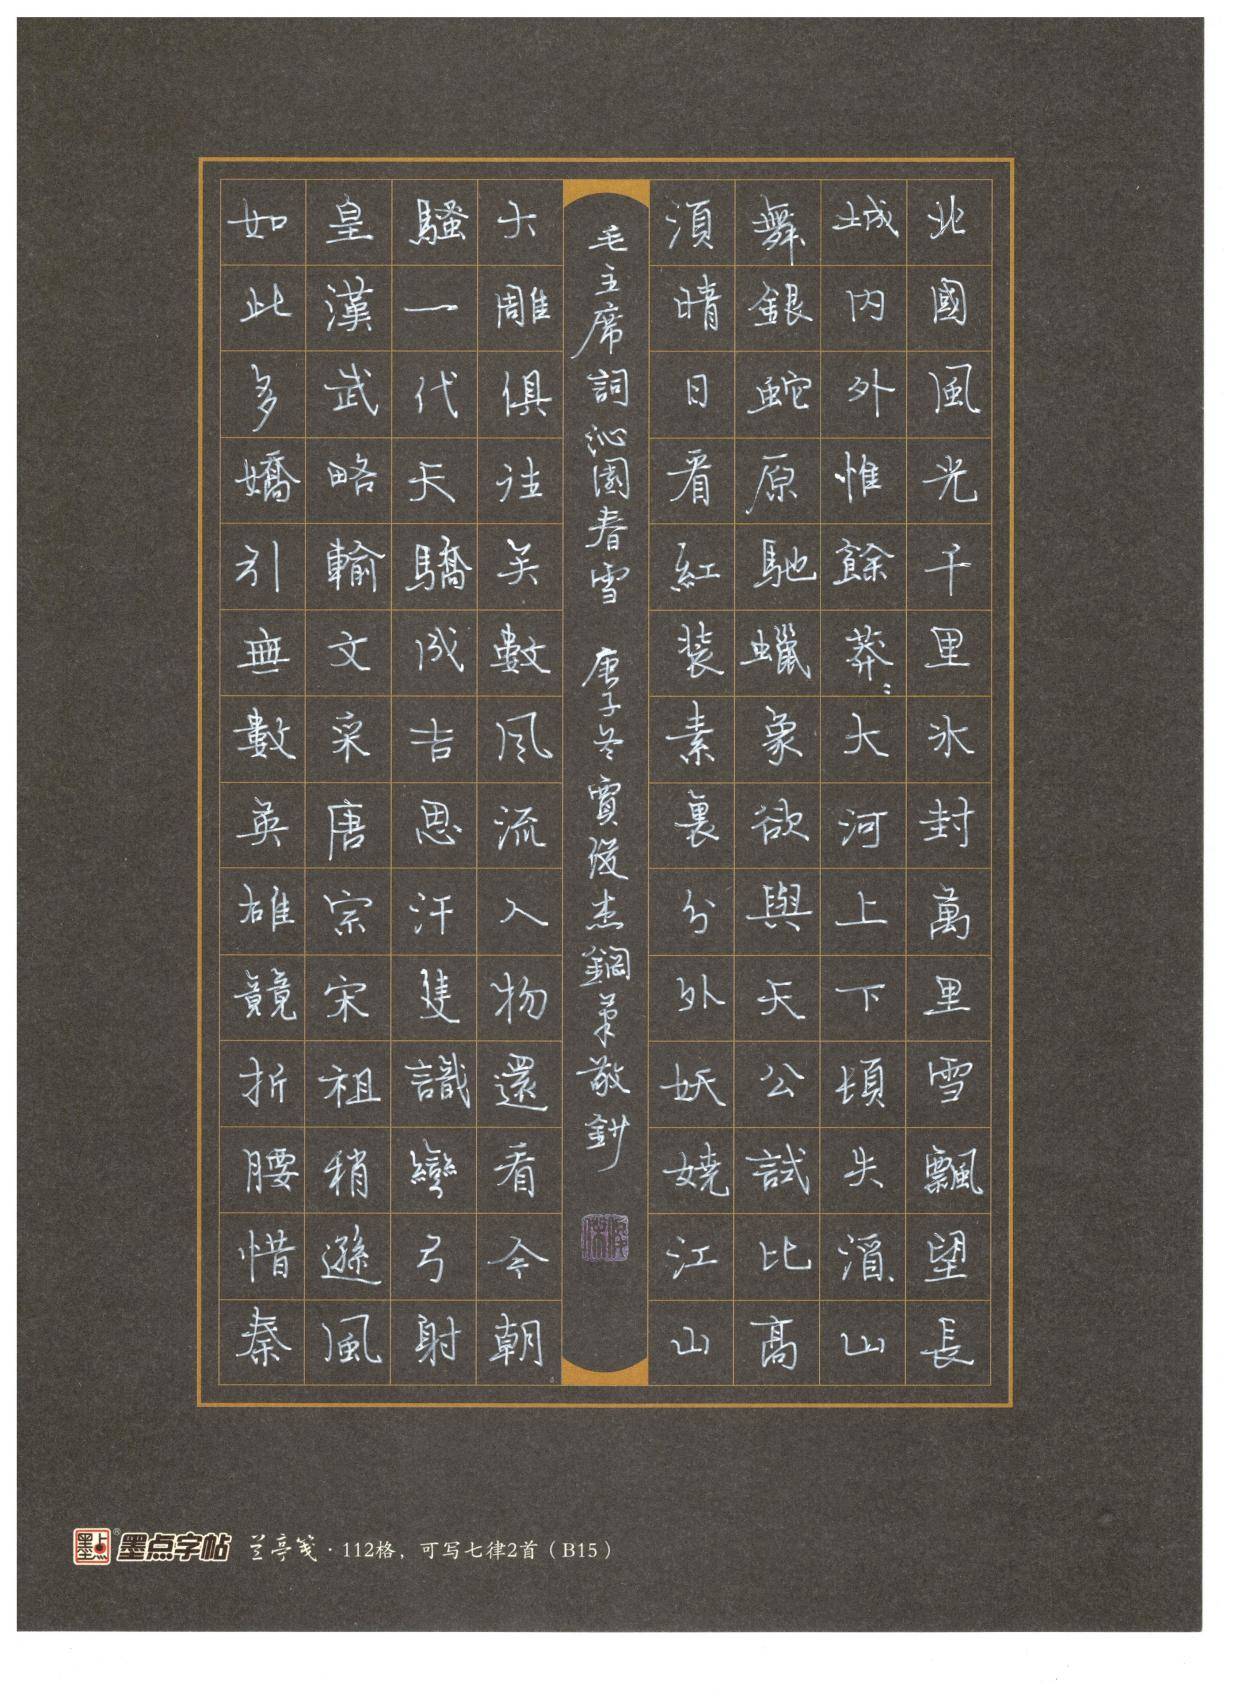 北國風光千里冰封萬里雪飄望長
城内外惟餘莽〻大河上下頓失滔、山
舞銀蛇原馳蠟象欲與天公試比高
須晴日看紅装素裹分外妖嬈江山
如此多嬌引無數英雄競折腰惜秦
皇漢武略輸文采唐宗宋祖稍遜風
騷一代天驕成吉思汗隻識彎弓射
大雕俱往矣數風流人物還看今朝
毛主席詞沁園春雪 庚子冬賈俊杰鋼筆敬鈔
墨点
墨点字帖 兰亭笺·112格，可写七律2首（B15）